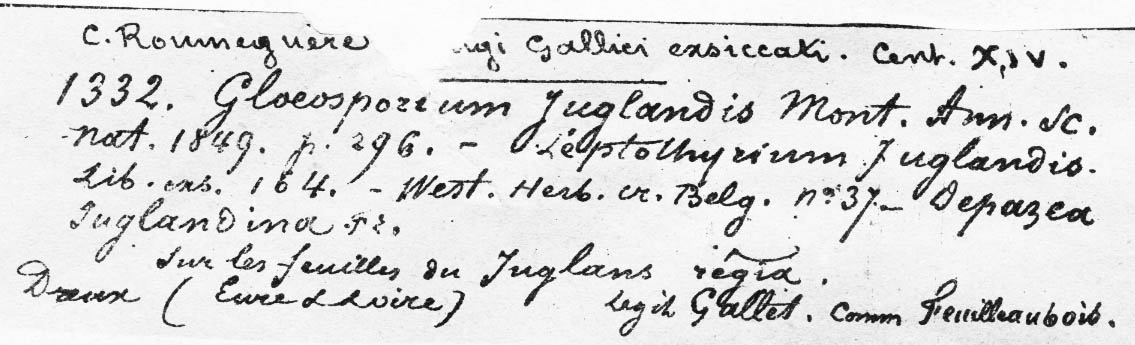 C. Roumeguère ngi Gallici exsiccati. Cent. XIV.
1332. Gloeosporium Juglandis Mont. Ann. Sc.
nat. 1849. p. 296. - Leptothyrium Juglandis.
Lib. exs. 164. - West. Herb. cr. Belg. nº 37 - Depazea
Juglandina Fr.
Sur les feuilles du Juglans regia.
Dreux (Eure & Loire) Legit Gallet. Comm Feuilleaubois.